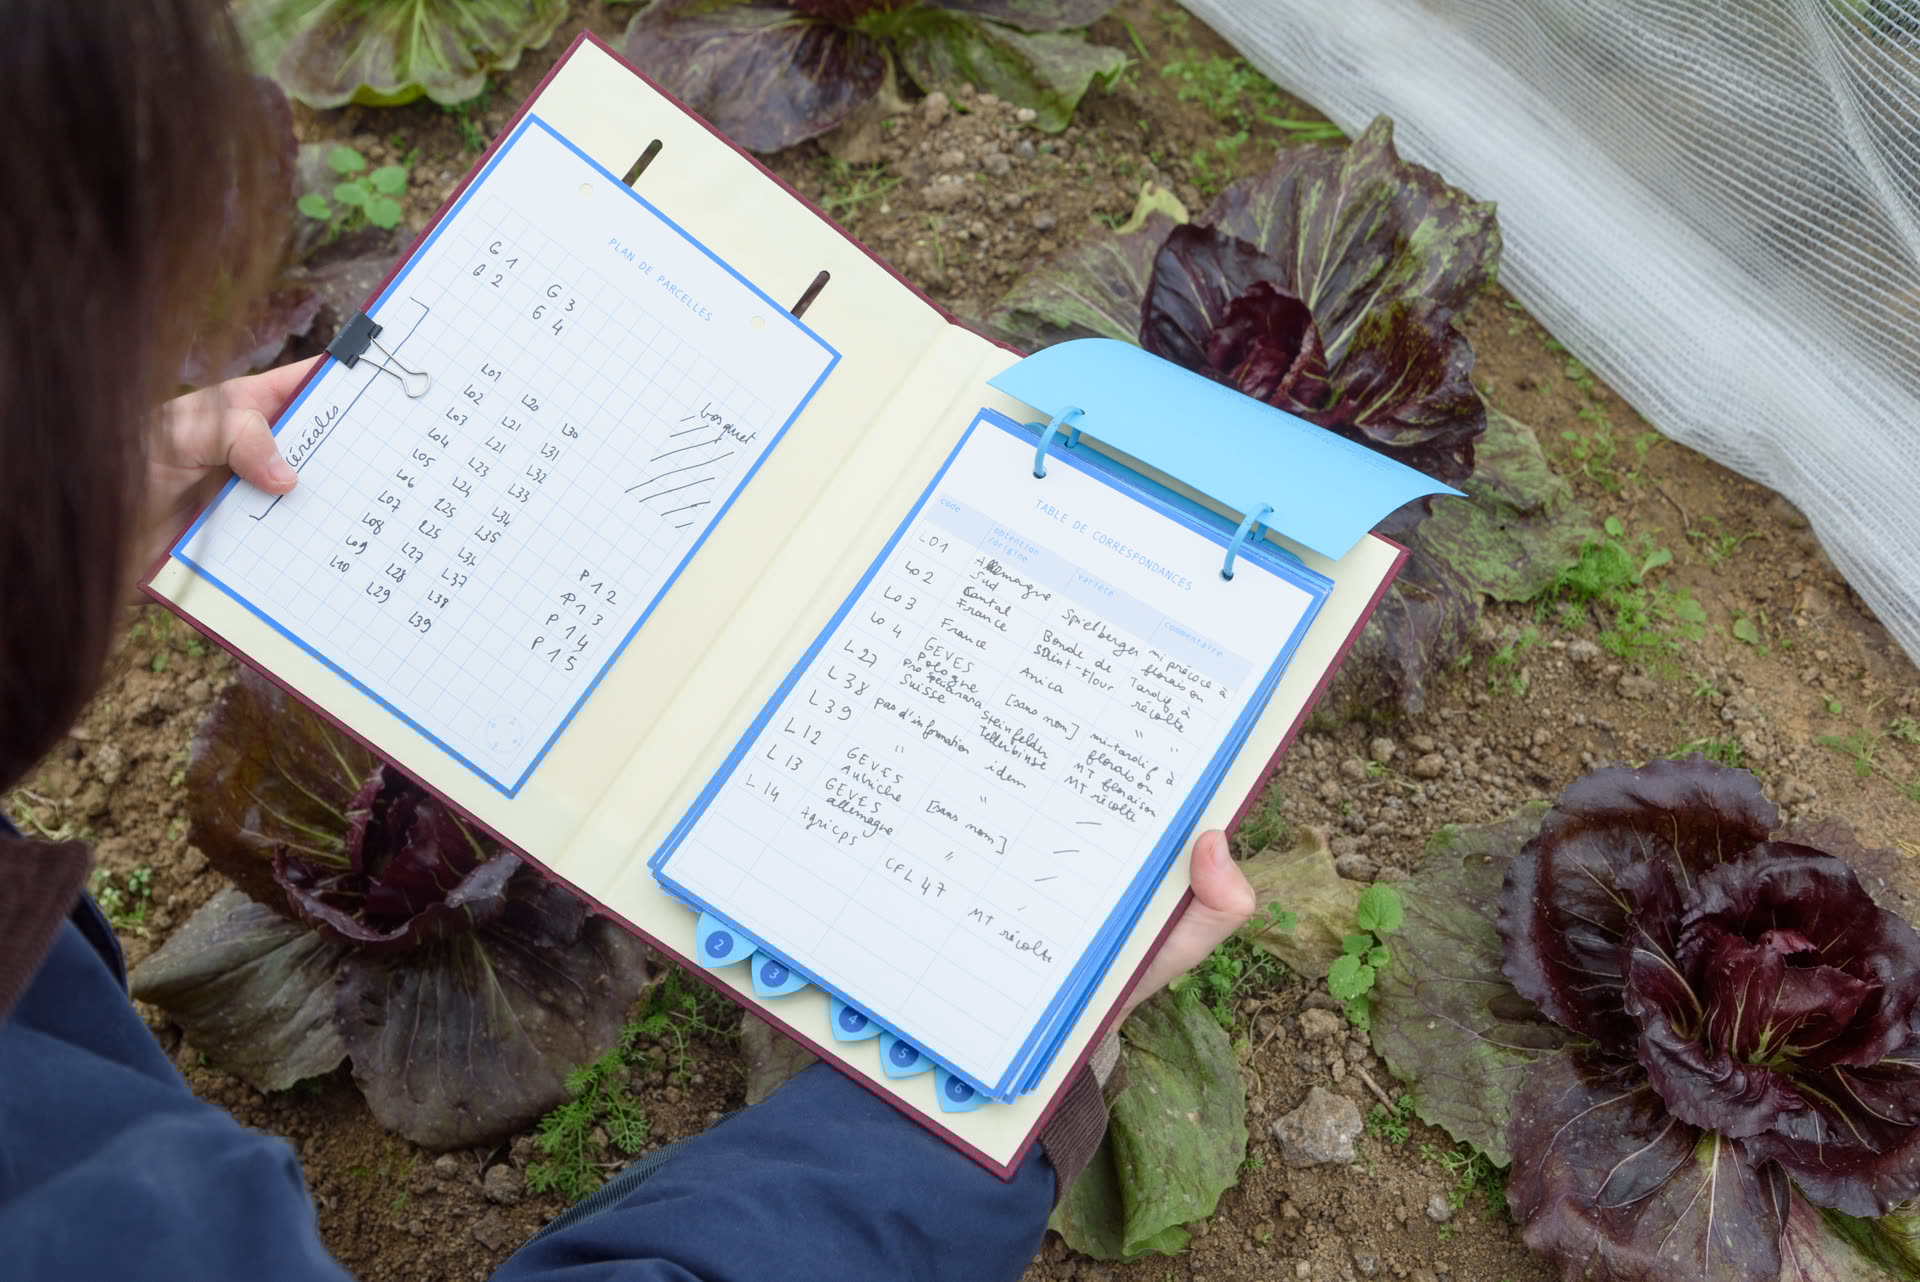 PLAN DE PARCELLES
G 1
G 2
G 3
G 4
céréales
bosquet
L01
L02
L03
L04
L05
L06
L07
L08
L09
L10
L20
L21
L21
L23
L24
L25
L25
L27
L28
L29
L30
L31
L32
L33
L34
L35
L36
L37
L38
L39
P 12
P 13
P 14
P 15
TABLE DE CORRESPONDANCES
code obtention /origine variété commentaire
L01 Allemagne Sud Spielberger mi précoce à floraison
L02 Cantal France Bonde de Saint-Flour Tardif à récolte
L03 France Arnica " "
L04 GEVES Pologne [sans nom] mi-tardif à floraison
L27 pro specie rara Suisse Steinfelder Tellerbinse MT floraison MT récolte
L38 pas d'information idem —
L39 " " —
L12 GEVES Autriche [sans nom] —
L13 GEVES allemagne "
L14 Agricps CFL 47 MT récolte
2
3
4
5
6